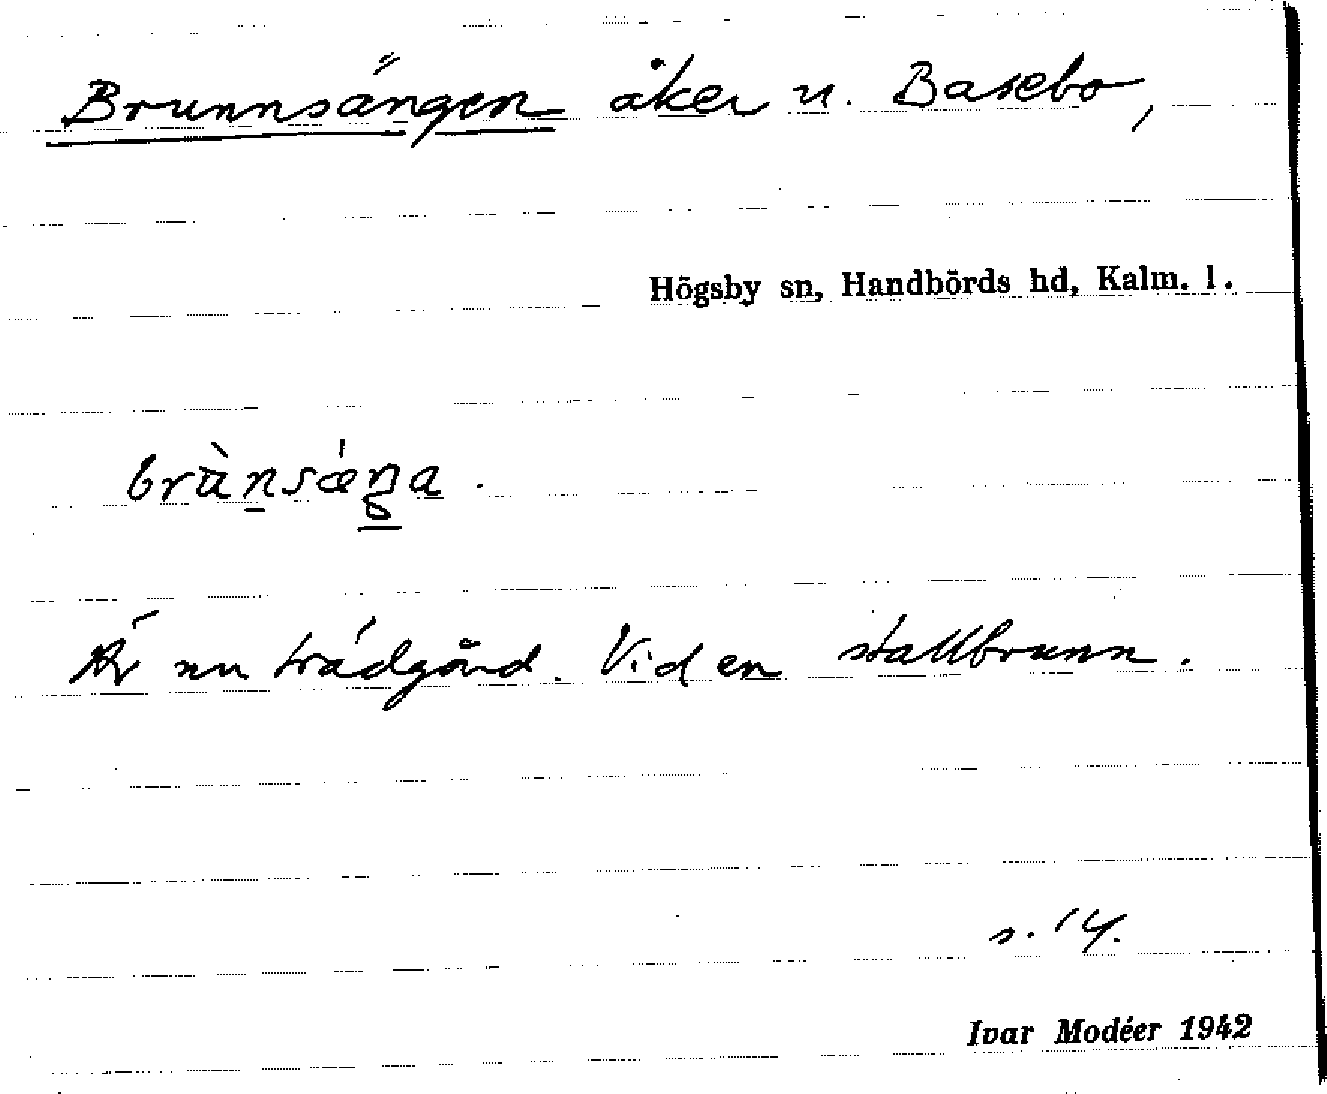 Brunnsängen åker u. Basebo,
Högsby sn, Handbörds hd, Kalm. l.
brùnsǽŋa.
Är nu trädgård. Vid en stallbrunn.
s. 14.
Ivar Modéer 1942